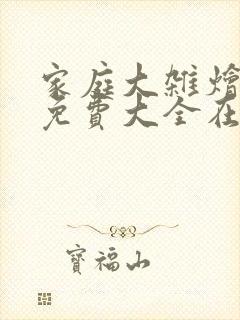 家庭大雑燴
免費大全在
寶福山